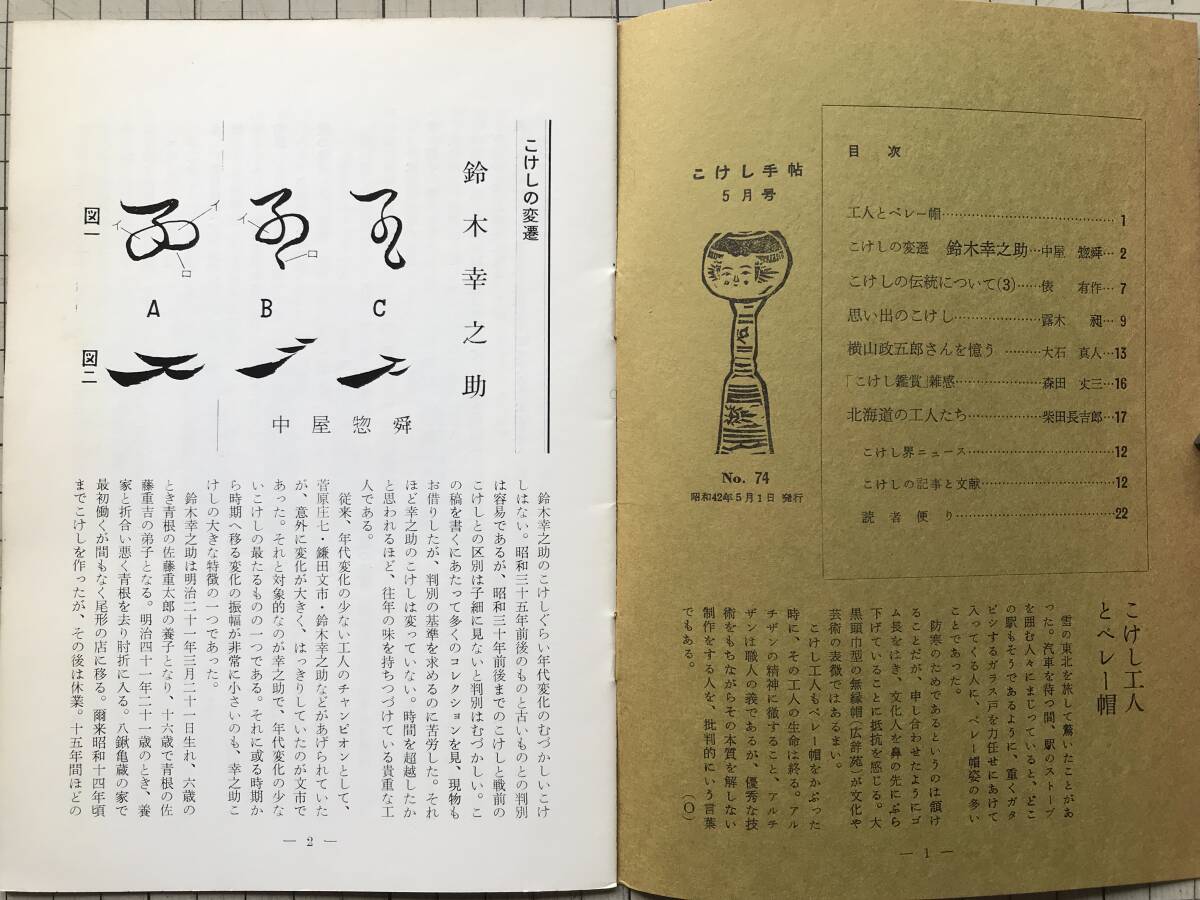 目次
工人とベレー帽……1
こけしの変遷 鈴木幸之助…中屋 惣舜…2
こけしの伝統について(3)……俵 有作…7
思い出のこけし……露木 昶…9
横山政五郎さんを憶う……大石 真人…13
「こけし鑑賞」雑感……森田 丈三…16
北海道の工人たち……柴田長吉郎…17
こけし界ニュース……12
こけしの記事と文献……12
読者便り……22
こけし手帖
5月号
No. 74
昭和42年5月1日 発行
こけし工人
とベレー帽
雪の東北を旅して驚いたことがあ
った。汽車を待つ間、駅のストーブ
を囲む人々にまじっていると、どこ
の駅もそうであるように、重くガタ
ピシするガラス戸を力任せにあけて
入ってくる人に、ベレー帽姿の多い
ことであった。
防寒のためであるというのは頷け
ることだが、申し合わせたようにゴ
ム長をはき、文化人を鼻の先にぶら
下げていることに抵抗を感じる。大
黒頭巾型の無縁帽(広辞苑)が文化や
芸術の表徴ではあるまい。
こけし工人もベレー帽をかぶった
時に、その工人の生命は終る。アル
チザンの精神に徹すること、アルチ
ザンは職人の義であるが、優秀な技
術をもちながらその本質を解しない
制作をする人を、批判的にいう言葉
でもある。 (O)
— 1 —
こけしの変遷
鈴木幸之助
中屋惣舜
図一
イ
イ
ロ
イ
ロ
A
B
C
図二
鈴木幸之助のこけしぐらい年代変化のむづかしいこけ
しはない。昭和三十五年前後のものと古いものとの判別
は容易であるが、昭和三十年前後までのこけしと戦前の
こけしとの区別は子細に見ないと判別はむづかしい。こ
の稿を書くにあたって多くのコレクションを見、現物も
お借りしたが、判別の基準を求めるのに苦労した。それ
ほど幸之助のこけしは変っていない。時間を超越したか
と思われるほど、往年の味を持ちつづけている貴重な工
人である。
従来、年代変化の少ない工人のチャンピオンとして、
菅原庄七・鎌田文市・鈴木幸之助などがあげられていた
が、意外に変化が大きく、はっきりしていたのが文市で
あった。それと対象的なのが幸之助で、年代変化の少な
いこけしの最たるものの一つである。それに或る時期か
ら時期へ移る変化の振幅が非常に小さいのも、幸之助こ
けしの大きな特徴の一つであった。
鈴木幸之助は明治二十一年三月二十一日生れ、六歳の
とき青根の佐藤重太郎の養子となり、十六歳で青根の佐
藤重吉の弟子となる。明治四十一年二十一歳のとき、養
家と折合い悪く青根を去り肘折に入る。八鍬亀蔵の家で
最初働くが間もなく尾形の店に移る。爾来昭和十四年頃
までこけしを作ったが、その後は休業。十五年間ほどの
— 2 —